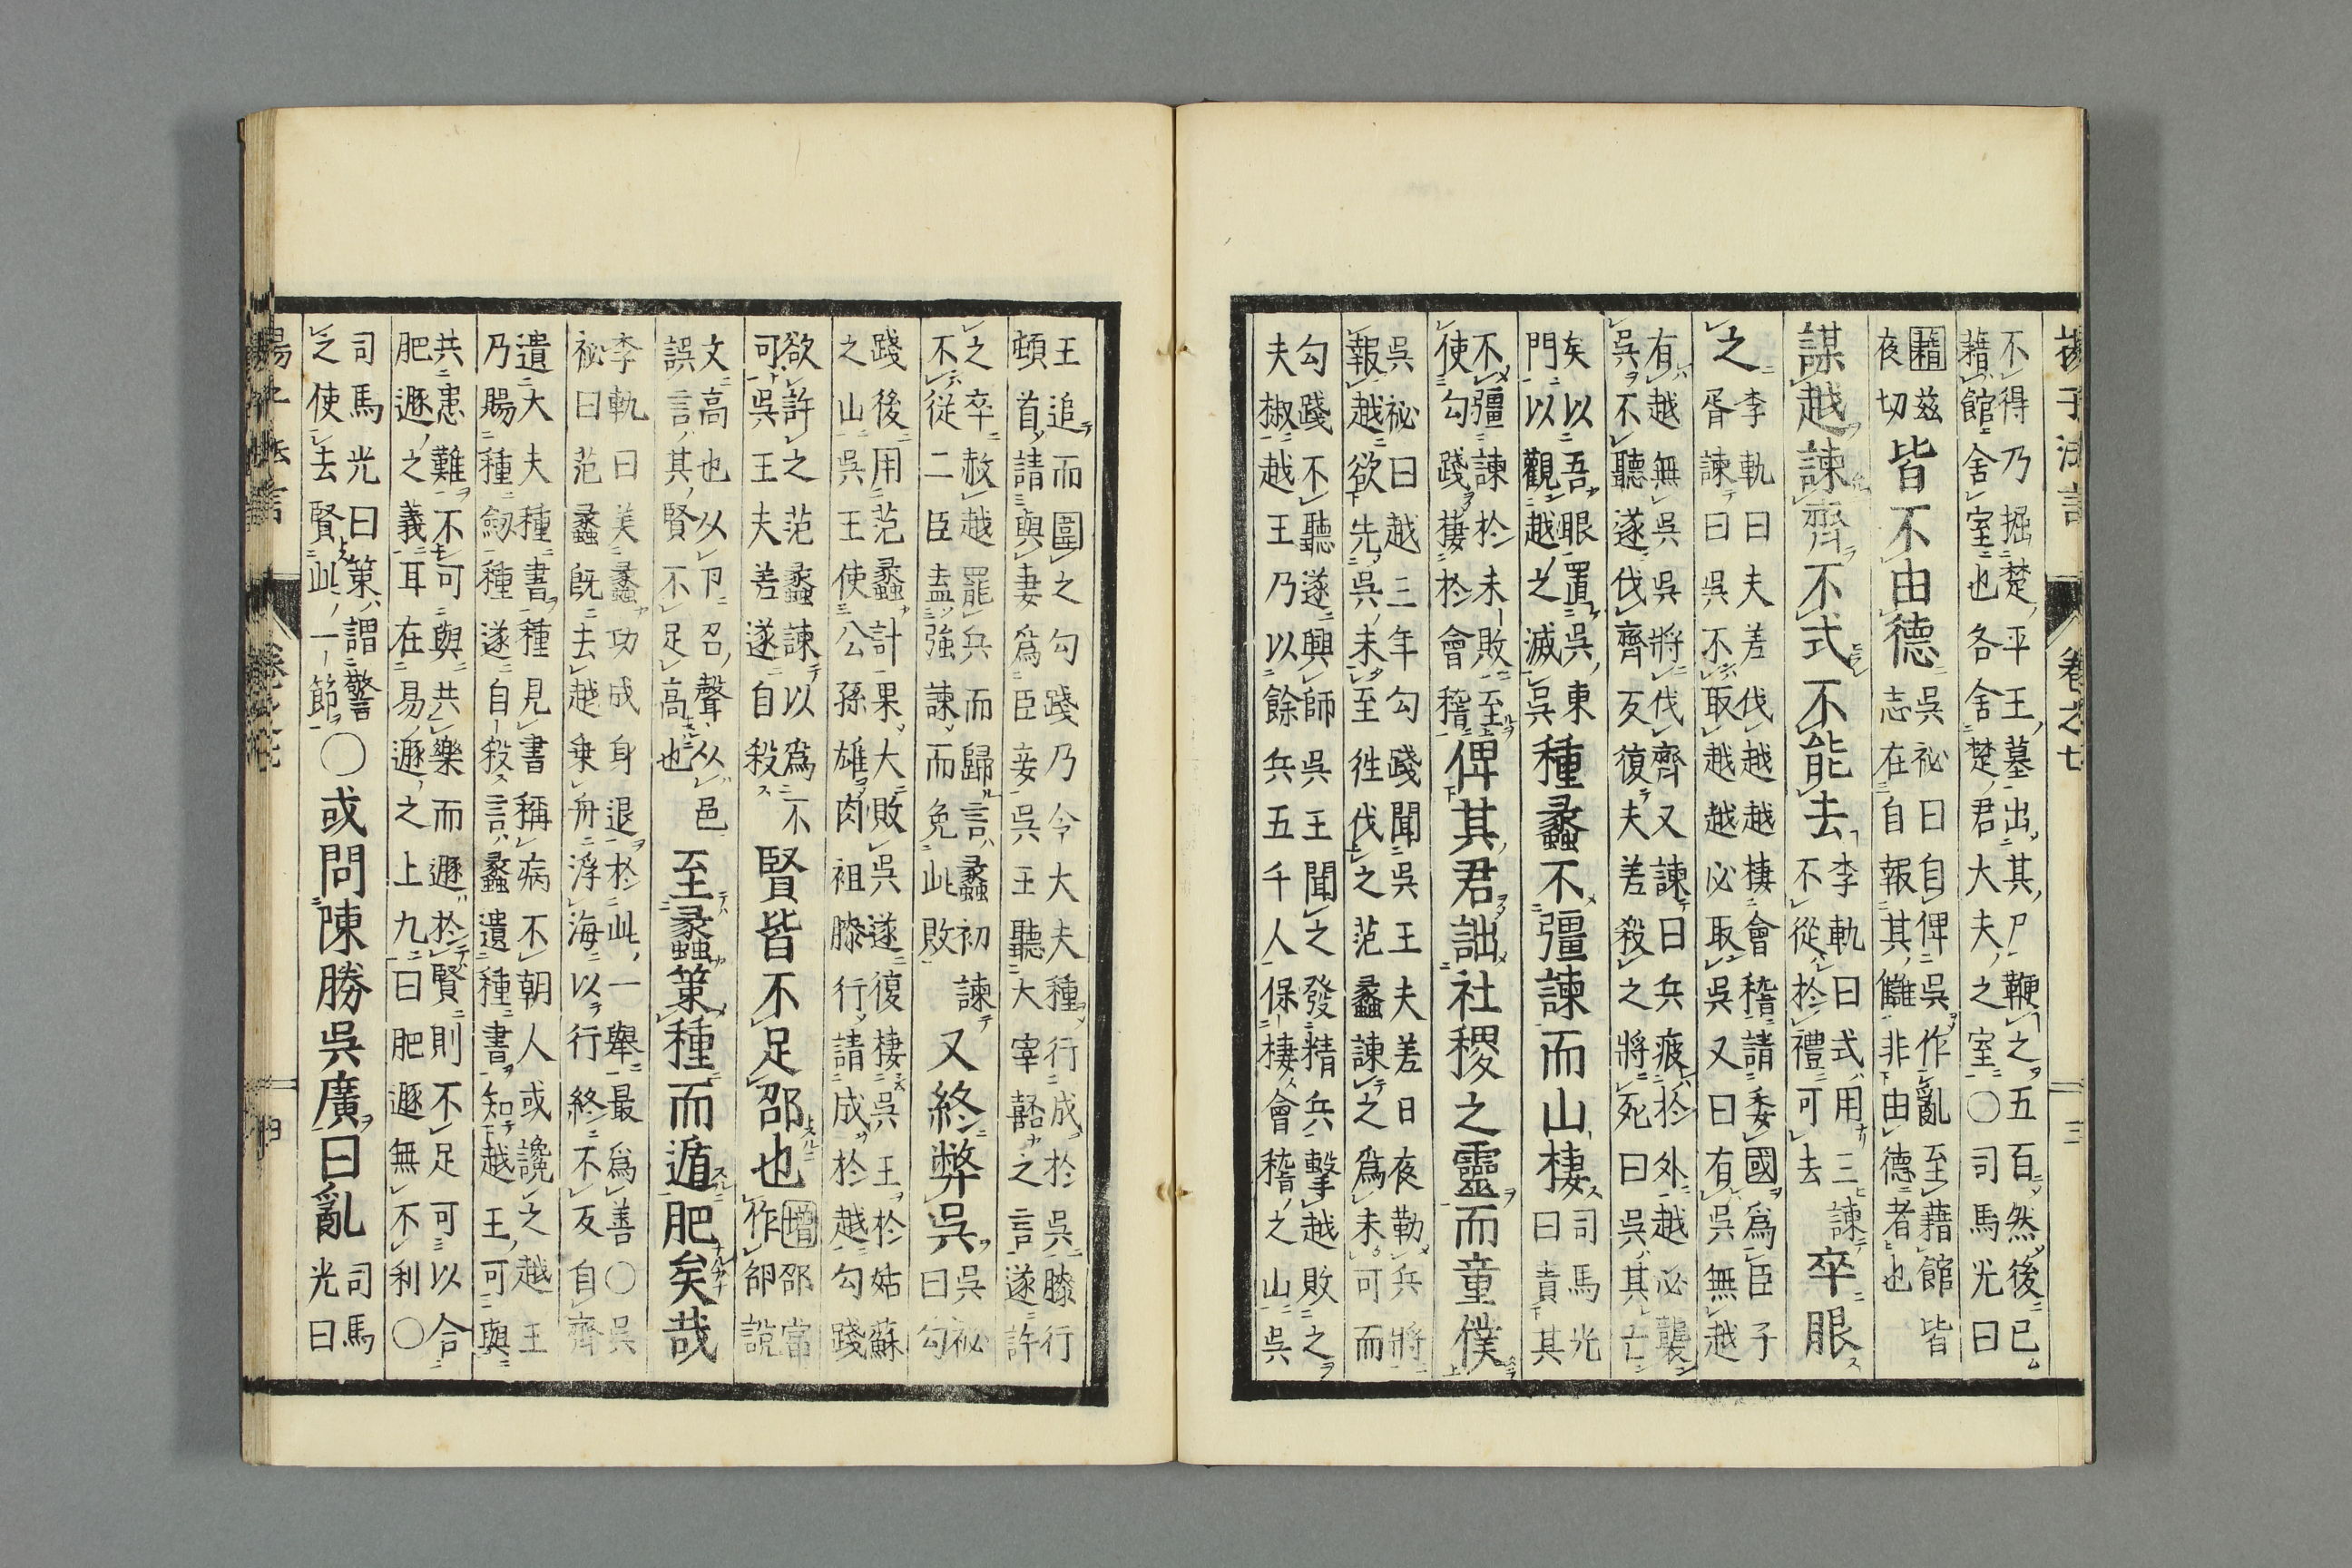 揚子法言　卷之七　三
不得乃掘楚平王墓出其尸鞭之五百然後已
藉館舍室也各舍楚君大夫之室〇司馬光曰
藉茲
夜切
皆不由德
吳祕曰自俾吳作亂至藉館皆
志在自報其讎非由德者也
謀越諫齊不式不能去
李軌曰式用三諫
不從於禮可去
卒眼
之
李軌曰夫差伐越越棲會稽請委國爲臣子
胥諫曰吳不取越越必取吳又曰有吳無越
有越無吳吳將伐齊又諫曰兵疲於外越必襲
吳不聽遂伐齊反復夫差殺之將死曰吳其亡
矣以吾眼置吳東
門以觀越之滅吳
種蠡不彊諫而山棲
司馬光
曰責其
不彊諫於未敗至
使勾踐棲於會稽
俾其君詘社稷之靈而童僕
吳祕曰越三年勾踐聞吳王夫差日夜勒兵將
報越欲先吳未至徃伐之范蠡諫之爲未可而
勾踐不聽遂興師吳王聞之發精兵擊越敗之
夫椒越王乃以餘兵五千人保棲會稽之山吳
王追而圍之勾踐乃令大夫種行成於吳膝行
頓首請與妻爲臣妾吳王聽大宰嚭之言遂許
之卒赦越罷兵而歸言蠡初諫
不從二臣盍強諫而免此敗
又終弊吳
吳祕
曰勾
踐後用范蠡計果大敗吳遂復棲吳王於姑蘇
之山吳王使公孫雄肉袒膝行請成於越勾踐
欲許之范蠡諫以爲不
可吳王夫差遂自殺
賢皆不足卲也
增卲當
作卲說
文高也以卩召聲从邑
誤言其賢不足高也
至蠡策種而遁肥矣哉
李軌曰美蠡功成身退於此一舉最爲善〇吳
祕曰范蠡既去越乗舟浮海以行終不反自齊
遺大夫種書種見書稱病不朝人或讒之越王
乃賜種劔種遂自殺言蠡遺種書知越王可與
共患難不可與共樂而遯於賢則不足可以合
肥遯之義耳在易遯之上九曰肥遯無不利〇
司馬光曰策謂警
之使去賢此一節
〇或問陳勝吳廣曰亂
司馬
光曰